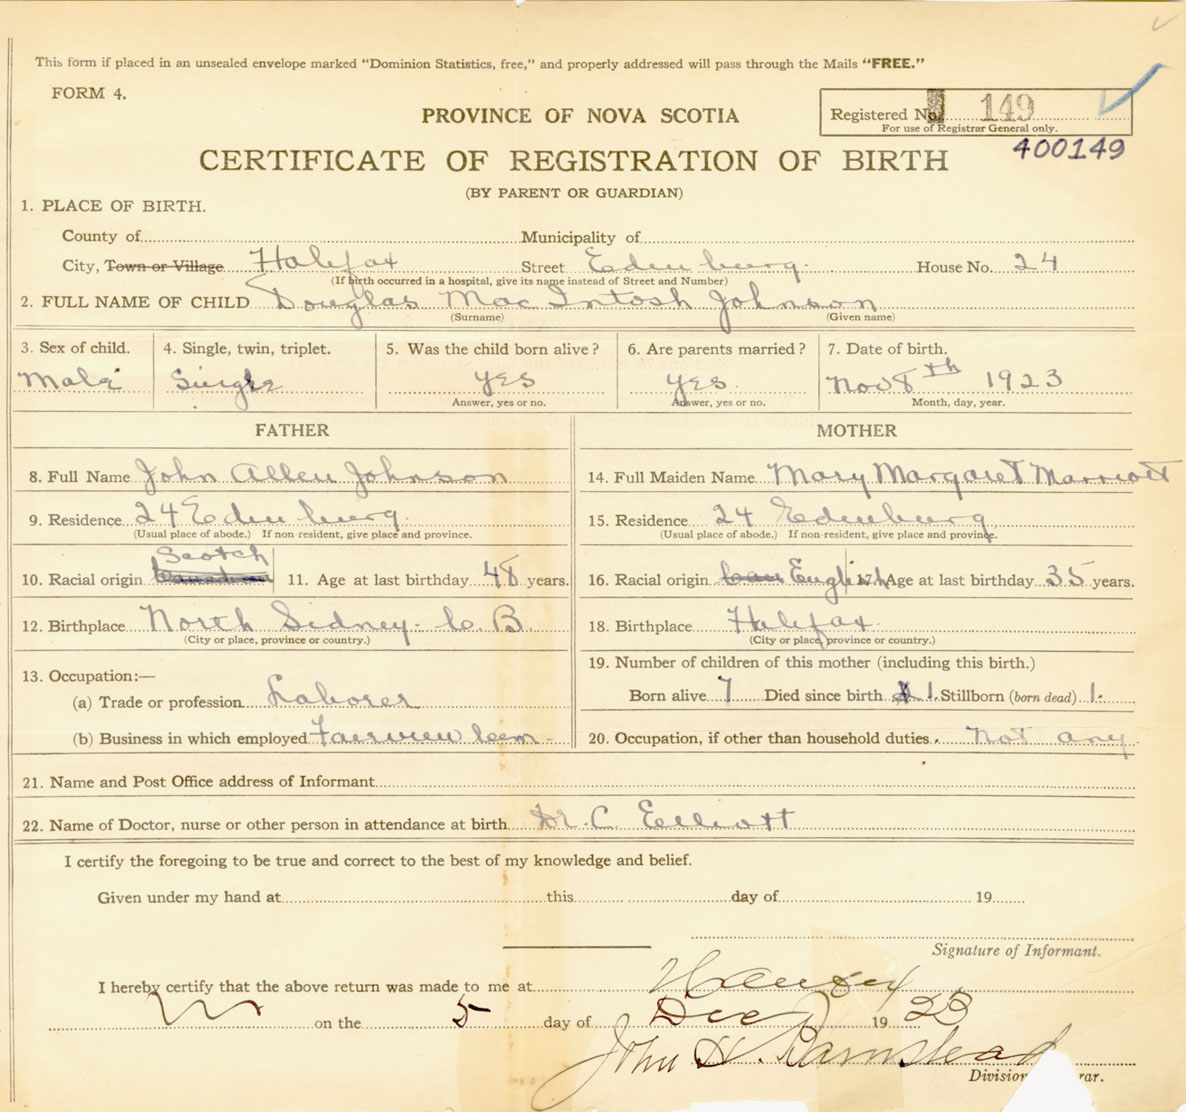 This form if placed in an unsealed envelope marked "Dominion Statistics, free," and properly addressed will pass through the Mails "FREE."
FORM 4.
PROVINCE OF NOVA SCOTIA
Registered No. 149
For use of Registrar General only.
400149
CERTIFICATE OF REGISTRATION OF BIRTH
(BY PARENT OR GUARDIAN)
1. PLACE OF BIRTH.
County of Municipality of
City, Town or Village Halifax Street Edenburg. House No. 24
(If birth occurred in a hospital, give its name instead of Street and Number)
2. FULL NAME OF CHILD Douglas Mac Intosh Johnson
(Surname) (Given name)
3. Sex of child. 4. Single, twin, triplet. 5. Was the child born alive? 6. Are parents married? 7. Date of birth.
Male Single yes yes. Nov 8th 1923
Answer, yes or no. Answer, yes or no. Month, day, year.
FATHER MOTHER
8. Full Name John Allen Johnson 14. Full Maiden Name Mary Margaret Marriott
9. Residence 24 Edenburg. 15. Residence 24 Edenburg
(Usual place of abode.) If non-resident, give place and province. (Usual place of abode.) If non-resident, give place and province.
Scotch
10. Racial origin Canadian 11. Age at last birthday 48 years. 16. Racial origin Can English 17. Age at last birthday 35 years.
12. Birthplace North Sidney - C. B. 18. Birthplace Halifax.
(City or place, province or country.) (City or place, province or country.)
13. Occupation:— 19. Number of children of this mother (including this birth.)
(a) Trade or profession Laborer Born alive 7 Died since birth 1. Stillborn (born dead) 1.
(b) Business in which employed Fairview Cem - 20. Occupation, if other than household duties. Not any
21. Name and Post Office address of Informant
22. Name of Doctor, nurse or other person in attendance at birth Dr. C. Elliott
I certify the foregoing to be true and correct to the best of my knowledge and belief.
Given under my hand at this day of 19
Signature of Informant.
I hereby certify that the above return was made to me at Halifax
on the 5 day of Dec 19 23
John H. Barnstead
Division rar.